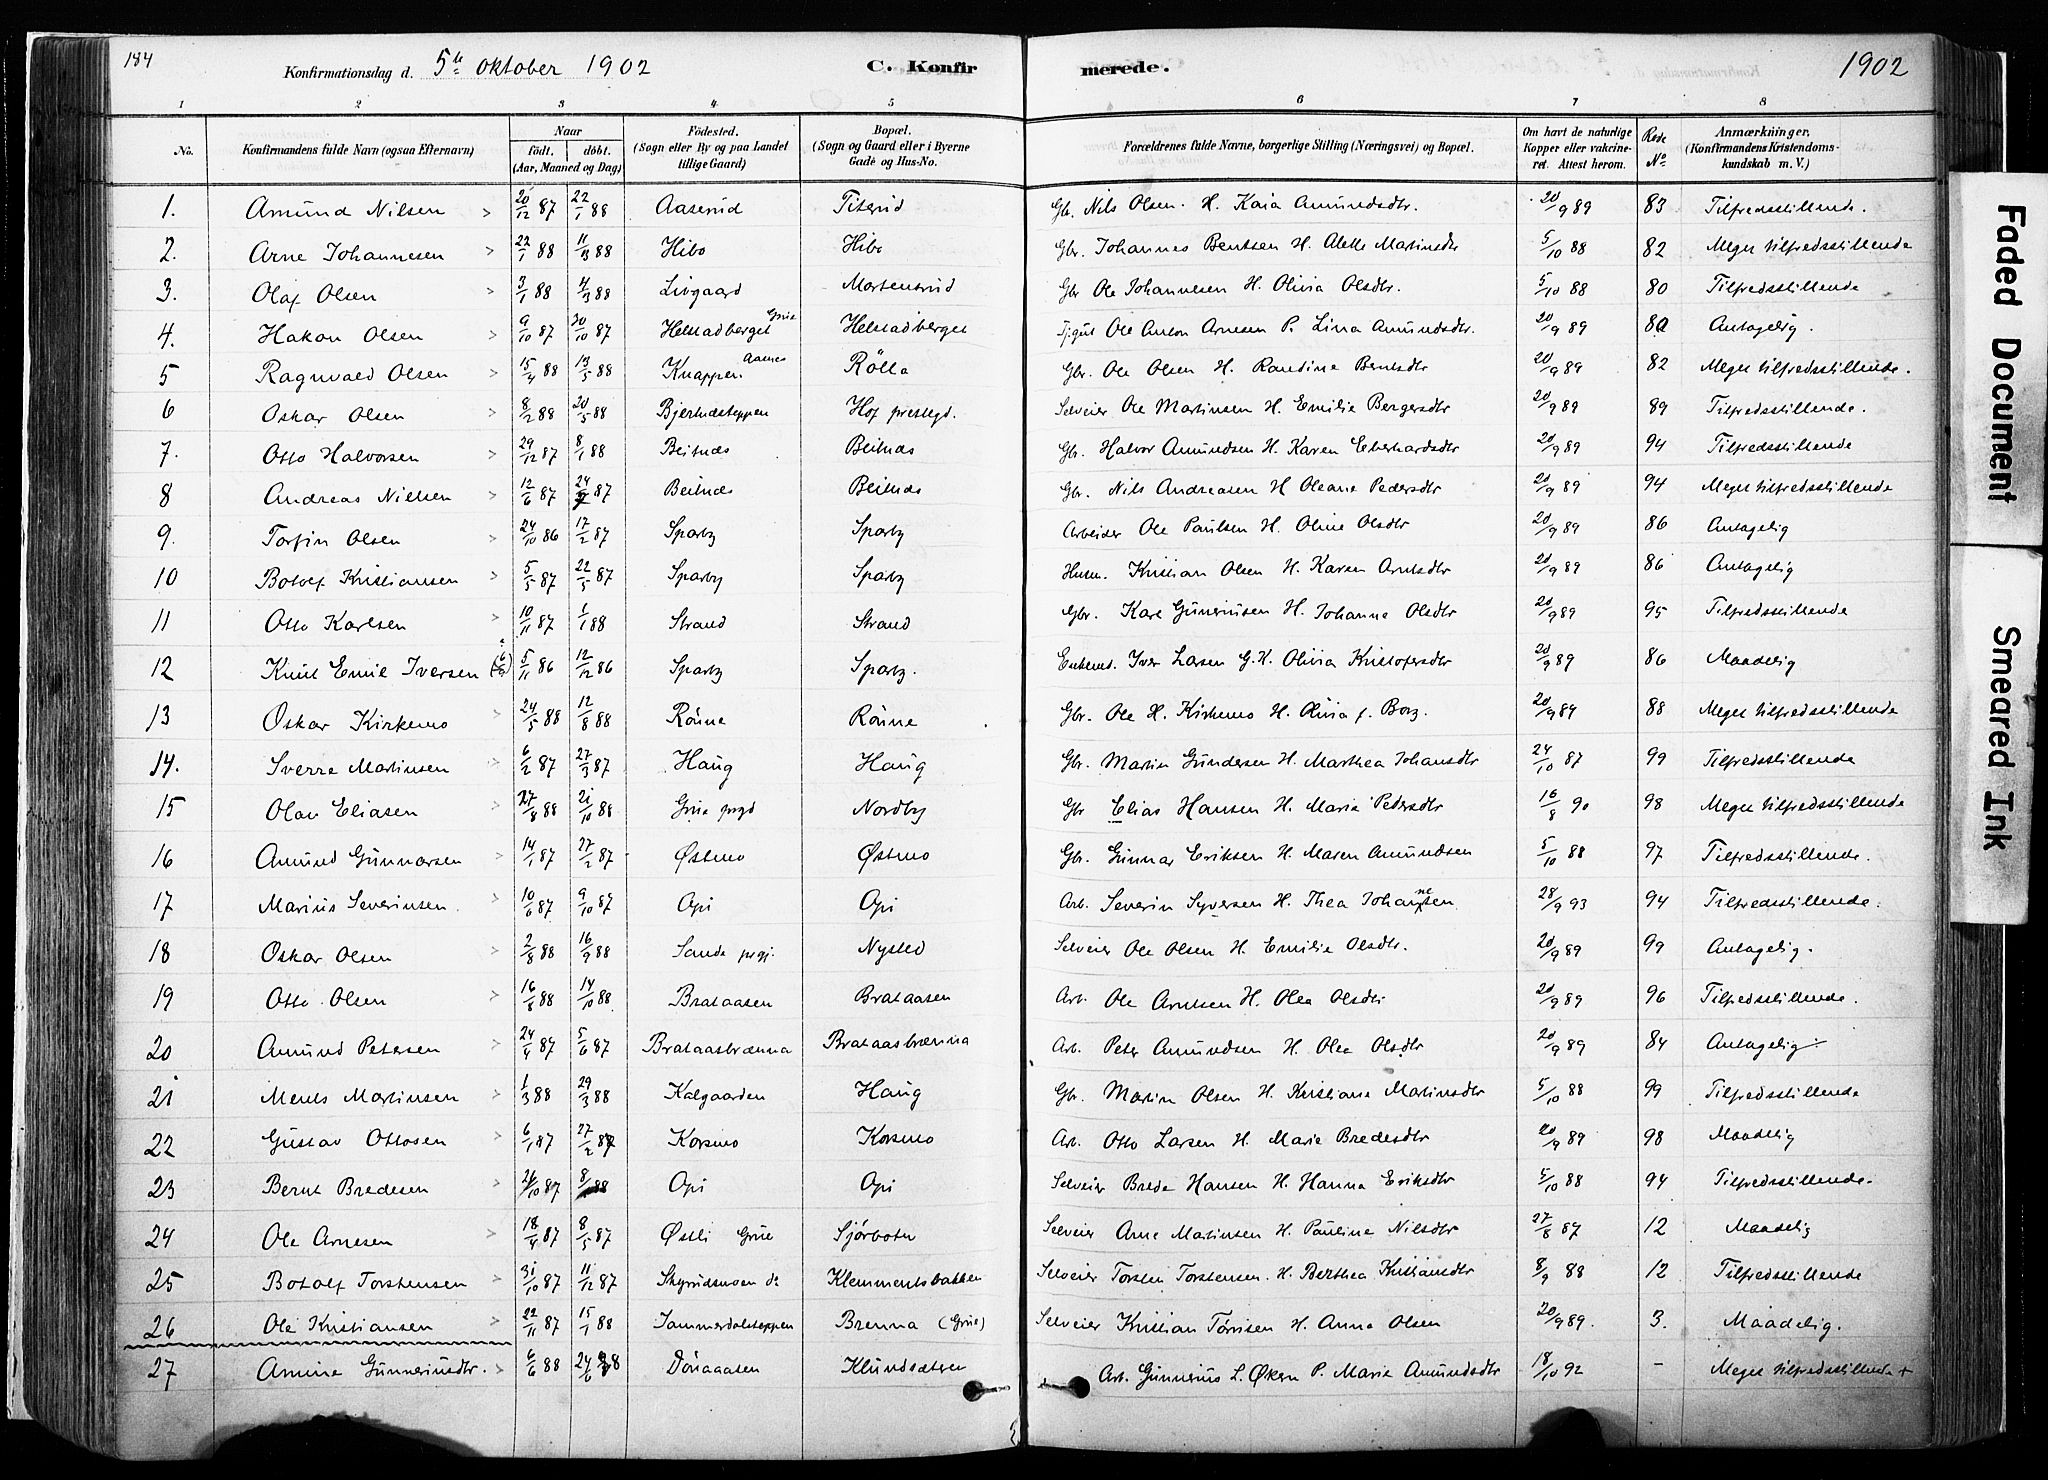 184
Konfirmationsdag d. 5te oktober 1902 C. Konfirmerede. 1902
1 2 3 4 5 6 7 8
No. Konfirmandens fulde Navn (ogsaa Efternavn) Naar födt. döbt. (Aar, Maaned og Dag) Födested. (Sogn eller By og paa Landet tillige Gaard) Bopæl. (Sogn og Gaard eller i Byerne Gade og Hus-No. Forældrenes fulde Navne, borgerlige Stilling (Næringsvei) og Bopæl. Om havt de naturlige Kopper eller vakcineret. Attest herom. Rode No Anmærkninger. (Konfirmandens Kristendomskundskab m. V.)
1. Amund Nilsen 20/12 87 22/1 88 Aaserud Titerud Gbr. Nils Olsen. H. Kaia Amundsdtr. 20/9 89 83 Tilfredsstillende.
2. Arne Johannesen 22/1 88 11/3 88 Hibo Hibo Gbr. Johannes Bentsen H. Alette Martinsdtr 5/10 88 82 Meget tilfredsstillende
3. Olaf Olsen 3/1 88 4/3 88 Livgaard Mortenserud Gbr Ole Johannesen H. Olivia Olsdtr. 5/10 88 80 Tilfredsstillende
4. Hakon Olsen 9/10 87 30/10 87 Helstadberget Grue Helstadberget Tjgut Ole Anton Arnesen P. Lina Amundsdtr. 20/9 89 80 Antagelig.
5 Ragnvald Olsen 15/4 88 13/5 88 Knappen Aasnes Rölla Gbr. Ole Olsen H. Randine Berntsdtr 20/9 89 82 Meget tilfredsstillende.
6 Oskar Olsen 8/2 88 20/5 88 Bjertnesteppen Hof prestegd. Selveier Ole Martinsen H. Emilie Bergersdtr 20/9 89 89 Tilfredsstillende.
7. Otto Halvorsen 29/12 87 8/1 88 Beitnes Beitnes Gbr. Halvor Amundsen H. Karen Eberhardsdtr 20/9 89 94 Tilfredsstillende
8 Andreas Nielsen 12/6 87 24/7 87 Beitnes Beitnes Gbr. Nils Andreasen H Oleane Pedersdtr 20/9 89 94 Meget tilfredsstillende
9. Torfin Olsen 24/10 86 17/2 87 Sparby Sparby Arbeider Ole Paulsen H. Oline Olsdtr 20/9 89 86 Antagelig
10 Botolf Kristiansen 5/5 87 22/5 87 Sparby Sparby Husm. Kristian Olsen H. Karen Arntsdtr 20/9 89 86 Antagelig
11 Otto Karlsen 10/11 87 1/1 88 Strand Strand Gbr. Karl Guneriusen H. Johanne Olsdtr 20/9 89 95 Tilfredsstillende
12 Knut Emil Iversen 5/11 86 12/12 86 Sparby Sparby. Enkemd. Iver Larsen G.H. Olivia Kristofersdtr 20/9 89 86 Maadelig
13 Oskar Kirkemo 24/5 88 12/8 88 Rönne Rönne Gbr. Ole H. Kirkemo H. Olivia f. Borg. 20/9 89 88 Meget tilfredsstillende
14. Sverre Martinsen 6/2 87 27/3 87 Haug Haug Gbr. Martin Gundersen H. Marthea Johansdtr 24/10 87 99 Tilfredsstillende
15 Olav Eliasen 27/8 88 21/10 88 Grue prgd Nordby Gbr Elias Hansen H. Maria Pedersdtr 16/8 90 98 Meget tilfredsstillende
16 Amund Gunnarsen 14/1 87 27/2 87 Østmo Østmo Gbr. Gunnar Eriksen H. Maren Amundsen 5/10 88 97 Tilfredsstillende.
17 Marius Severinsen. 10/6 87 9/10 87 Opi Opi Arb. Severin Syversen H. Thea Johannesen 28/9 93 94 Tilfredsstillende.
18 Oskar Olsen 2/8 88 16/9 88 Sande prgj. Nysted Selveier Ole Olsen H. Emilie Olsdtr. 20/9 89 99 Antagelig.
19 Otto Olsen 16/8 88 14/10 88 Brataasen Brataasen Arb. Ole Arntsen H. Olea Olsdtr 20/9 89 96 Tilfredsstillende.
20 Amund Petersen 24/4 87 5/6 87 Brataasbrænna Brataasbrænna Arb. Peter Amundsen H. Olea Olsdtr 20/9 89 84 Antagelig
21 Ments Martinsen 1/3 88 29/3 88 Kalgaarden Haug Gbr. Martin Olsen H. Kristiane Martinsdtr 5/10 88 99 Tilfredsstillende
22 Gustav Ottosen 6/1 87 27/2 87 Korsmo Korsmo Arb. Otto Larsen H. Marie Bredesdtr 20/9 89 98 Maadelig
23 Bernt Bredesen 21/10 87 8/1 88 Opi Opi Selveier Brede Hansen H. Hanna Eriksdtr 5/10 88 94 Tilfredsstillende.
24 Ole Arnesen 18/4 87 8/5 87 Østli Grue Sjörbotn Selveier Arne Martinsen H. Pauline Nilsdtr 27/8 87 12 Maadelig
25 Botolf Torstensen 31/10 87 11/12 87 Skyrudsmoen do Klemmentsbakken Selveier Torsten Torstensen. H. Berthea Kristiansdtr 8/9 88 12 Tilfredsstillende
26 Ole Kristiansen 22/11 87 15/1 88 Sammerdalsteppen Brenna (Grue) Selveier Kristian Törrisen H. Anna Olsen 20/9 89. 3. Maadelig.
27 Amine Gunneriusdtr. 6/6 88 24/6 88 Dönaasen Klundsætren Arb. Gunnerius L. Økern P. Marie Amundsdtr 18/10 92 - Meget tilfredsstillende +
Faded Document
Smeared Ink